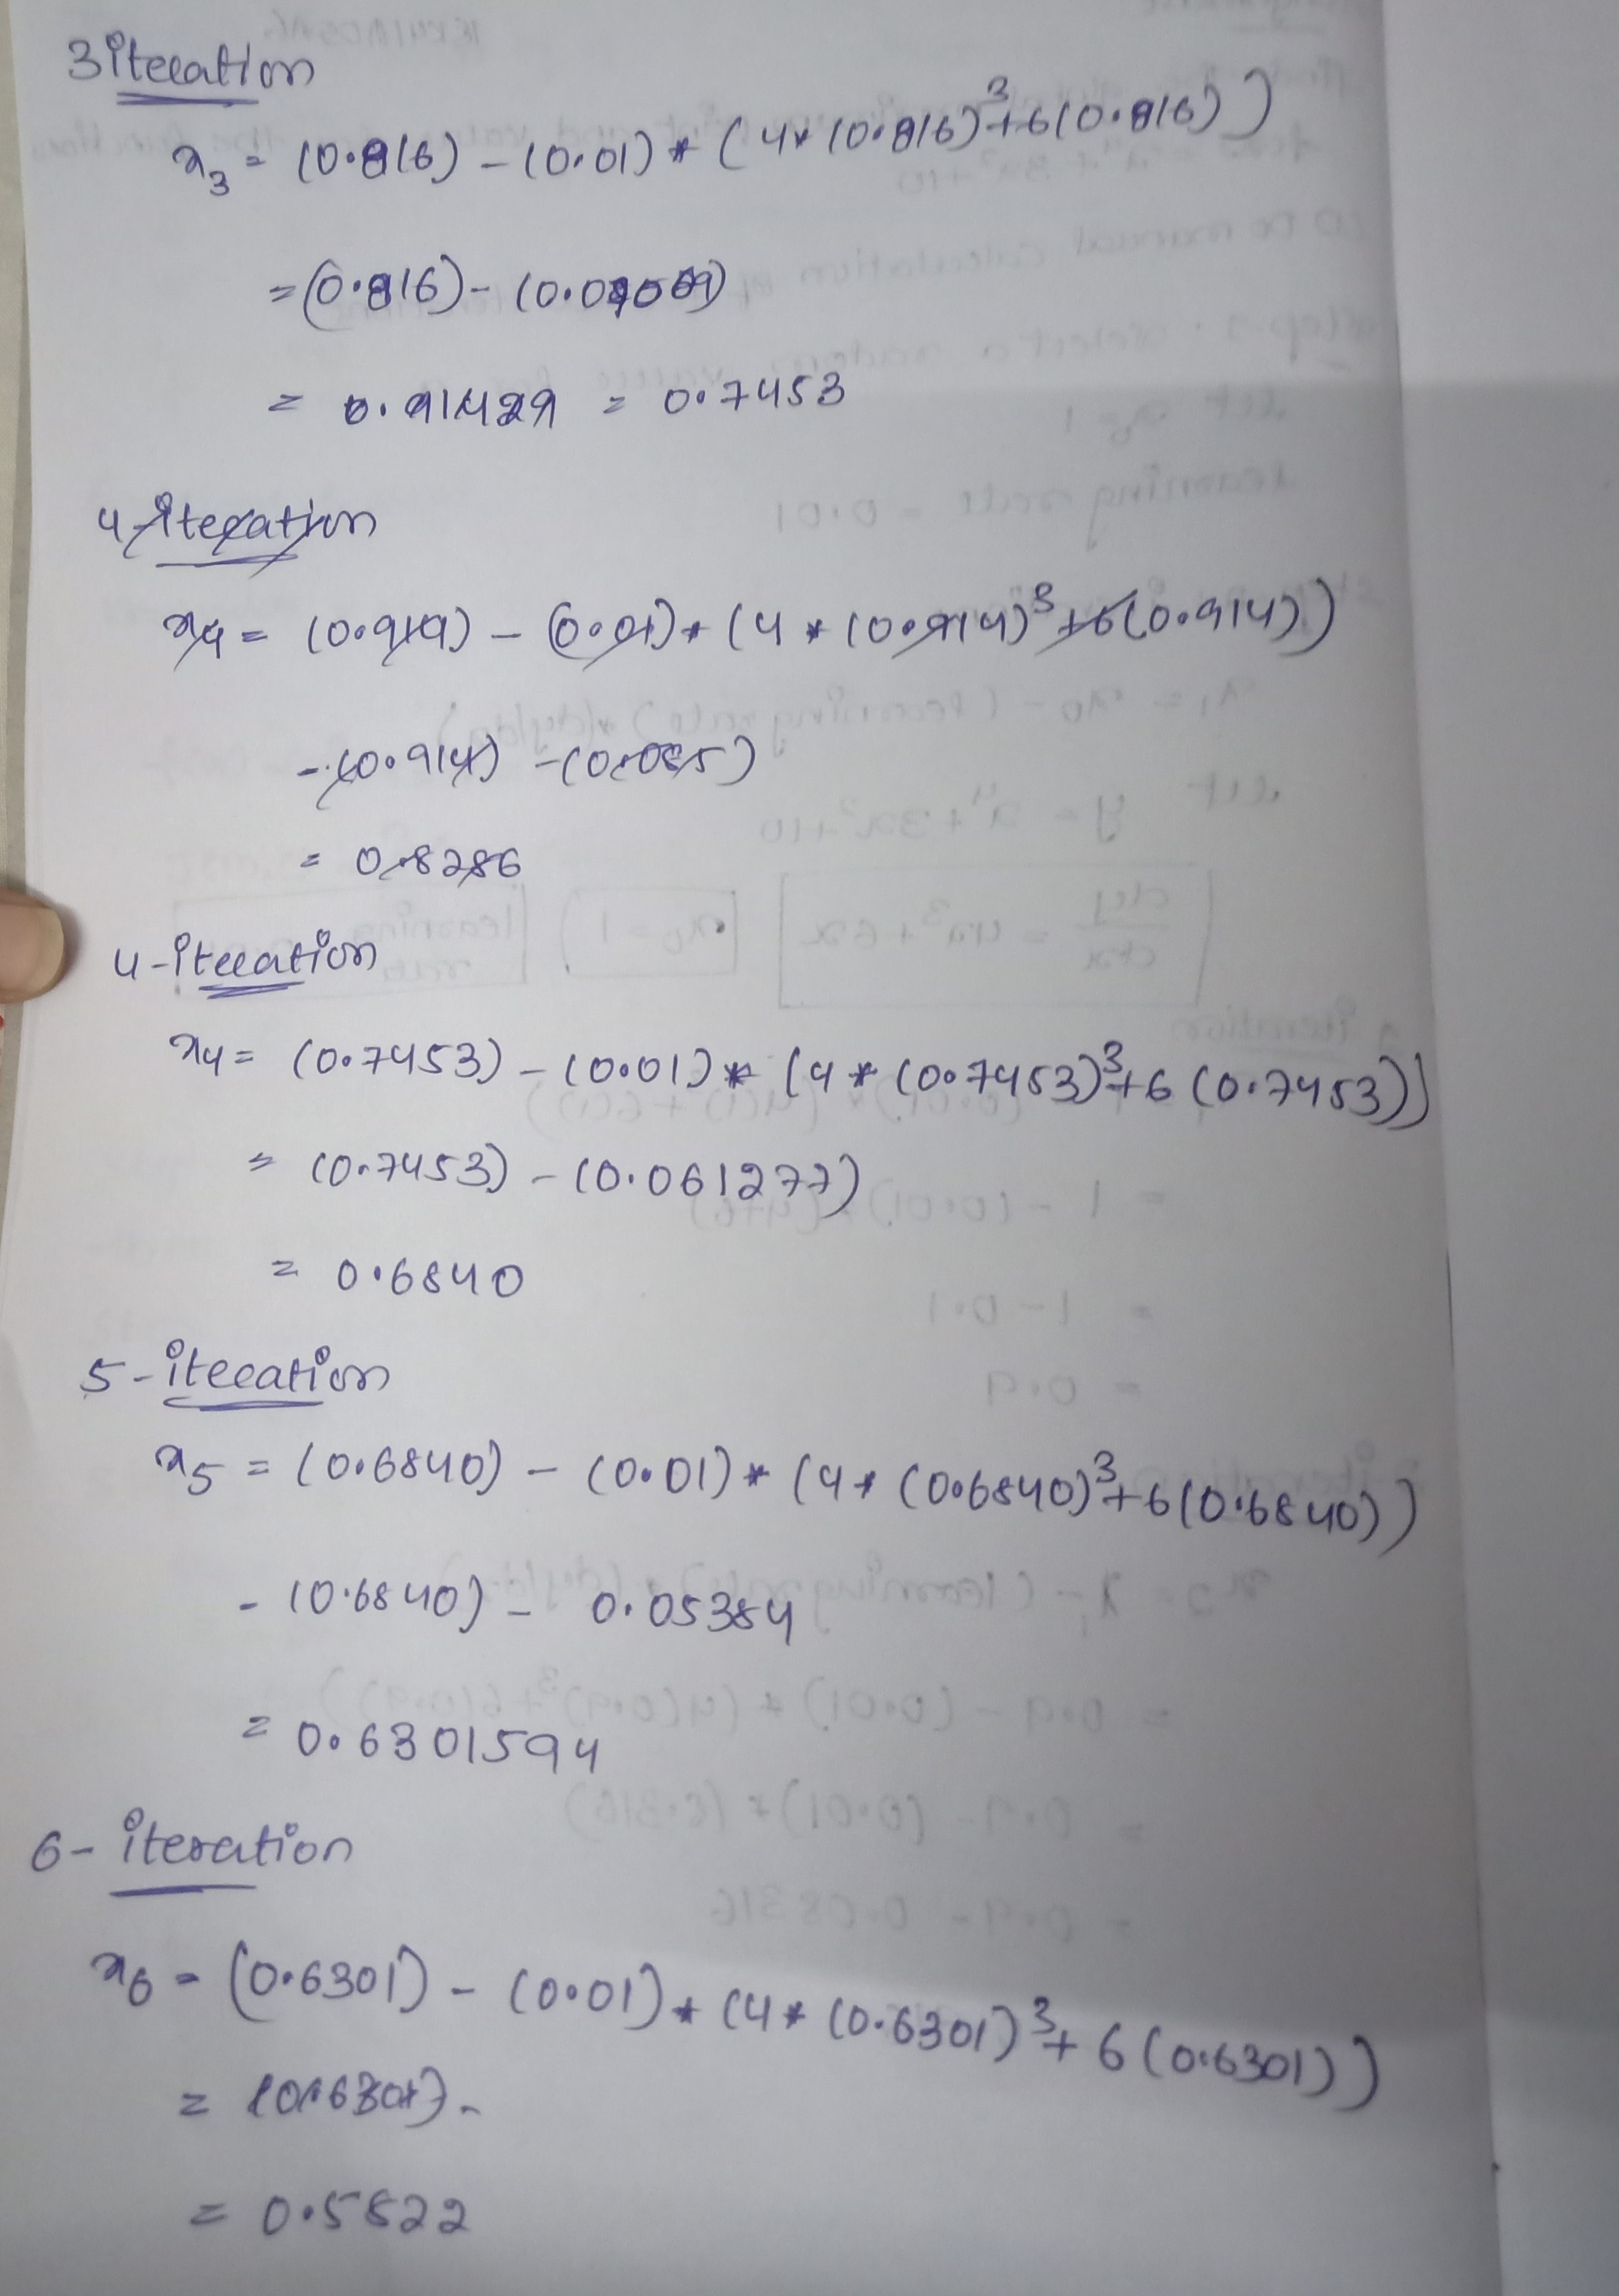 3 iteration
x₃ = (0.816) - (0.01) * (4 * (0.816)³ + 6(0.816))
= (0.816) - 
= 0.91429 = 0.7453
4-iteration
x₄ = (0.914) - (0.01) * (4 * (0.914)³ + 6(0.914))
- (0.914) - (0.085)
= 0.8286
4-iteration
x₄ = (0.7453) - (0.01) * (4 * (0.7453)³ + 6(0.7453))
= (0.7453) - (0.061277)
= 0.6840
5-iteration
x₅ = (0.6840) - (0.01) * (4 * (0.6840)³ + 6(0.6840))
- (0.6840) - 0.05384
= 0.6301594
6-iteration
x₆ = (0.6301) - (0.01) * (4 * (0.6301)³ + 6(0.6301))
= (0.6301) -
= 0.5822